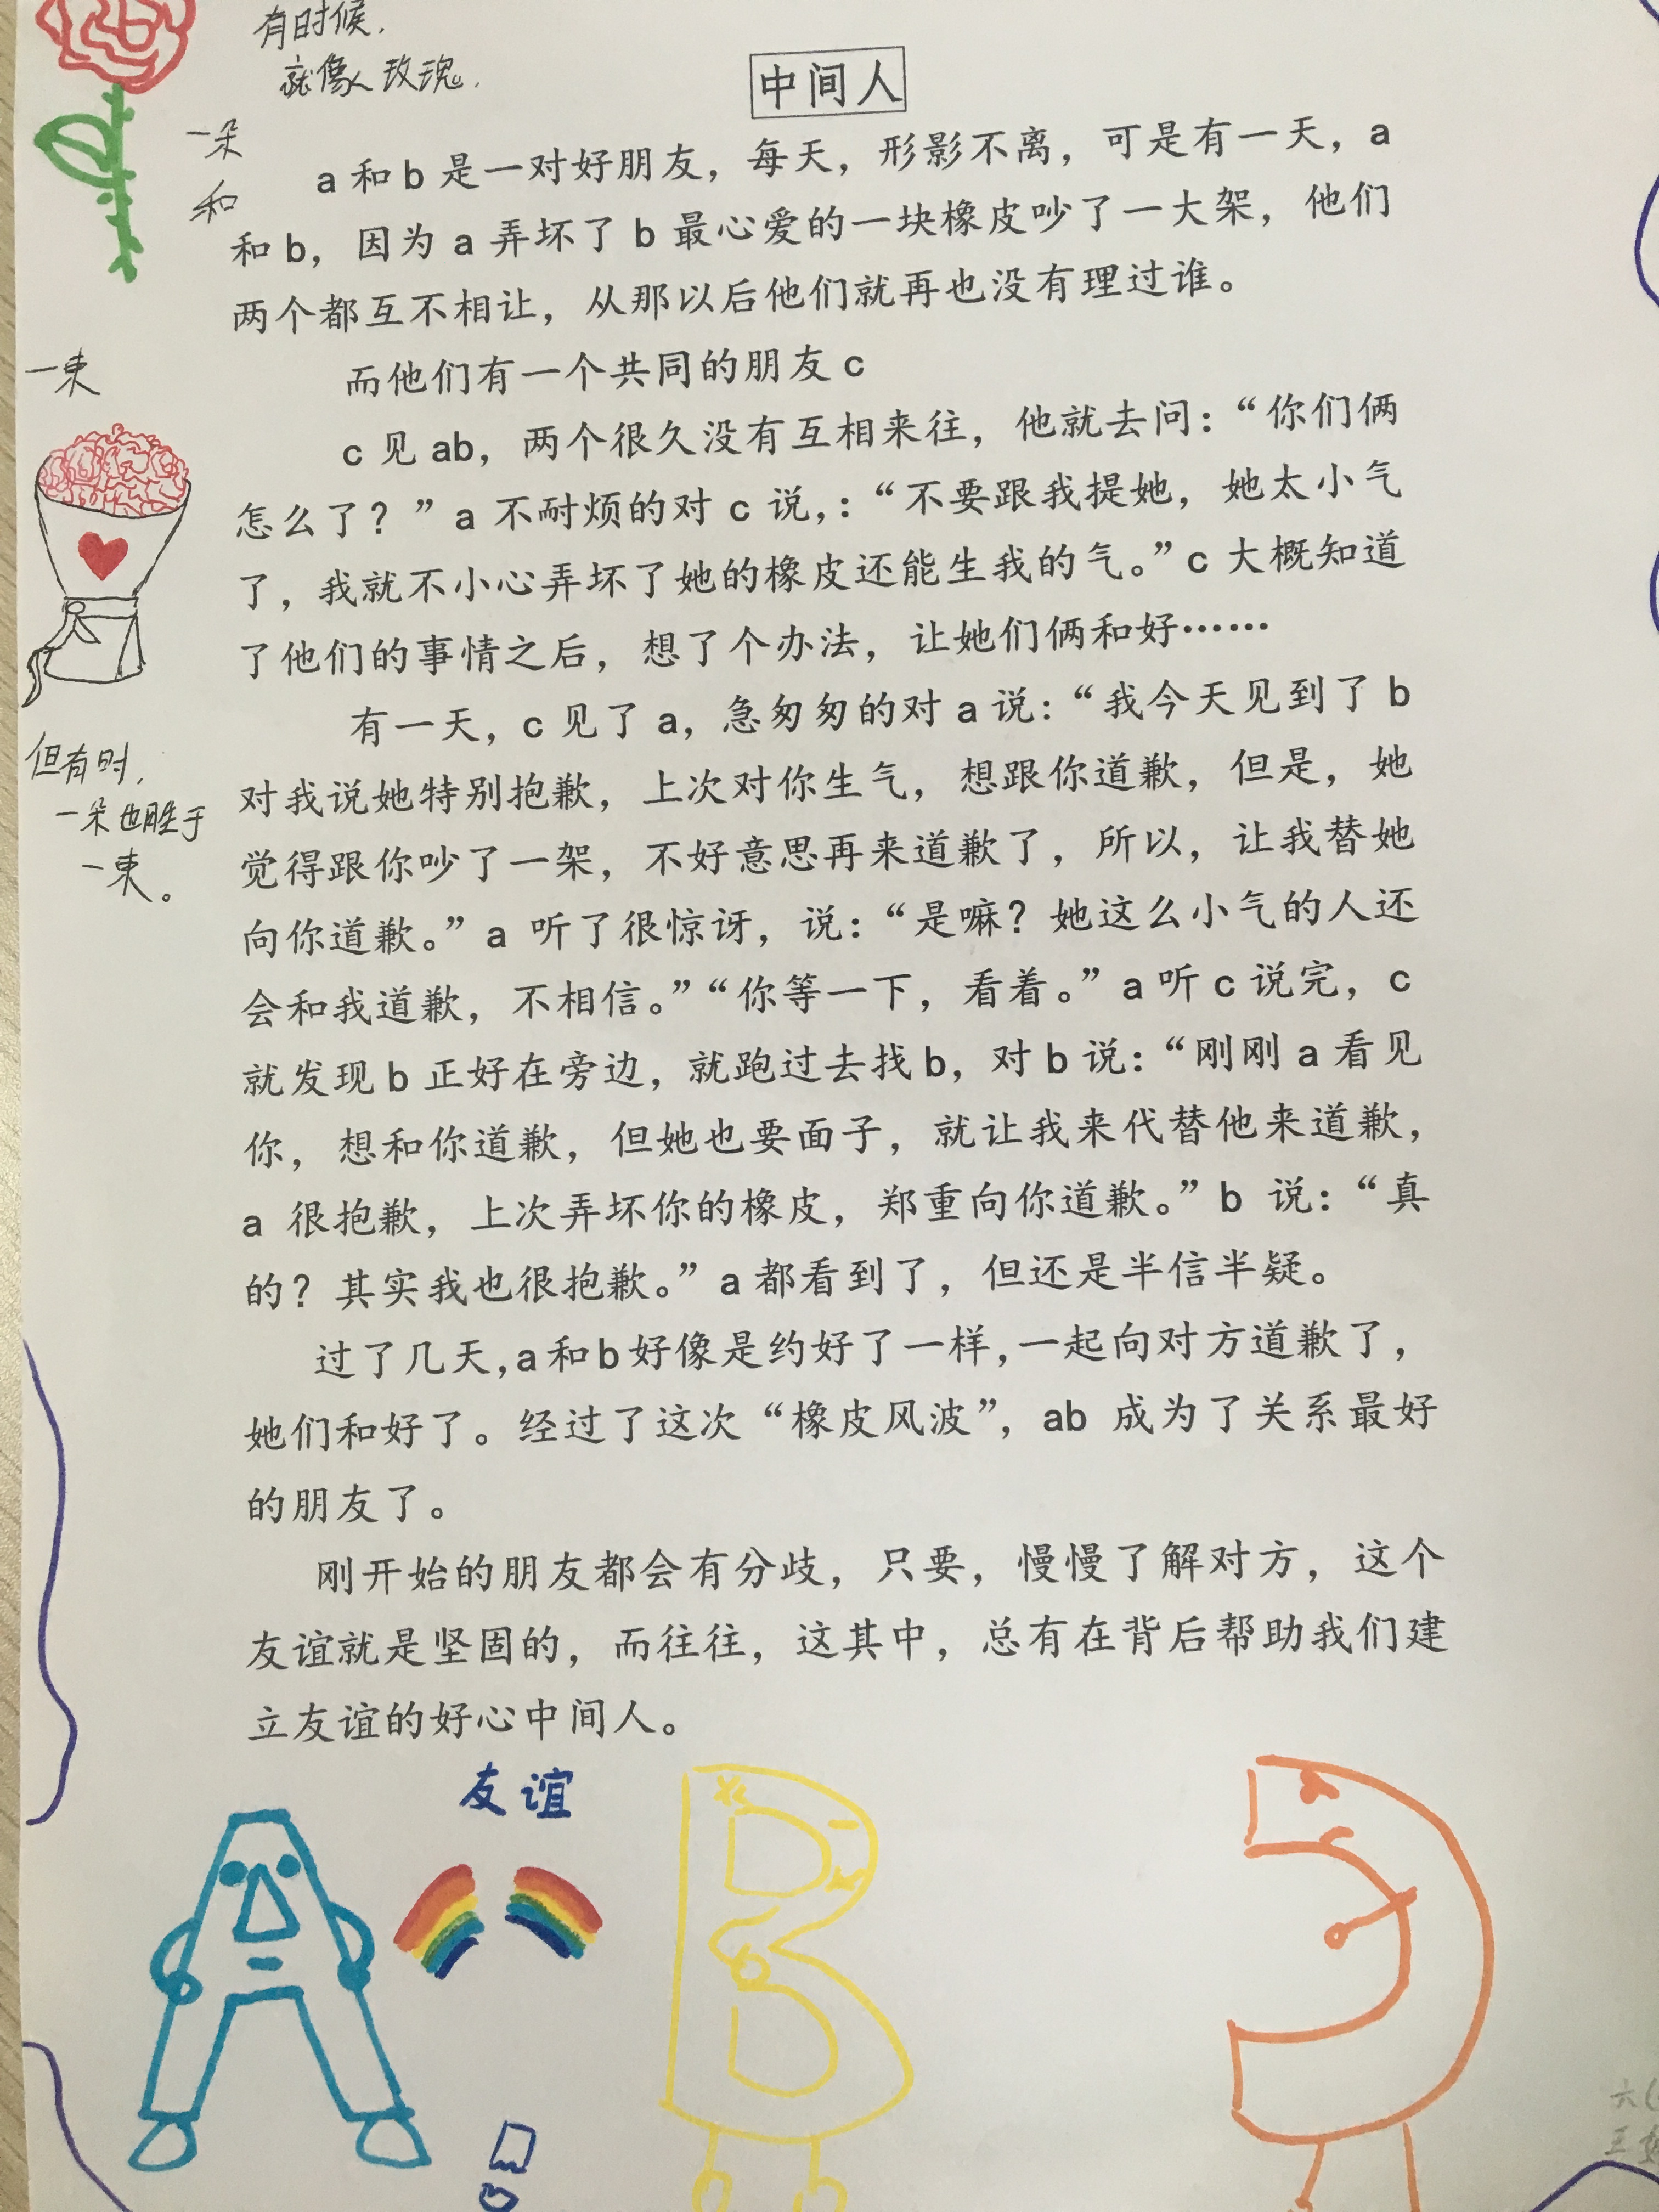 有时候，
就像 玫瑰.
一朵
和
一束
但有时，
一朵也胜于
一束。
中间人
a 和 b 是一对好朋友，每天，形影不离，可是有一天，a
和 b，因为 a 弄坏了 b 最心爱的一块橡皮吵了一大架，他们
两个都互不相让，从那以后他们就再也没有理过谁。
而他们有一个共同的朋友 c
c 见 ab，两个很久没有互相来往，他就去问：“你们俩
怎么了？”a 不耐烦的对 c 说，：“不要跟我提她，她太小气
了，我就不小心弄坏了她的橡皮还能生我的气。”c 大概知道
了他们的事情之后，想了个办法，让她们俩和好……
有一天，c 见了 a，急匆匆的对 a 说：“我今天见到了 b
对我说她特别抱歉，上次对你生气，想跟你道歉，但是，她
觉得跟你吵了一架，不好意思再来道歉了，所以，让我替她
向你道歉。”a 听了很惊讶，说：“是嘛？她这么小气的人还
会和我道歉，不相信。”“你等一下，看着。”a 听 c 说完，c
就发现 b 正好在旁边，就跑过去找 b，对 b 说：“刚刚 a 看见
你，想和你道歉，但她也要面子，就让我来代替他来道歉，
a 很抱歉，上次弄坏你的橡皮，郑重向你道歉。”b 说：“真
的？其实我也很抱歉。”a 都看到了，但还是半信半疑。
过了几天，a 和 b 好像是约好了一样，一起向对方道歉了，
她们和好了。经过了这次“橡皮风波”，ab 成为了关系最好
的朋友了。
刚开始的朋友都会有分歧，只要，慢慢了解对方，这个
友谊就是坚固的，而往往，这其中，总有在背后帮助我们建
立友谊的好心中间人。
友谊
A
B
六(